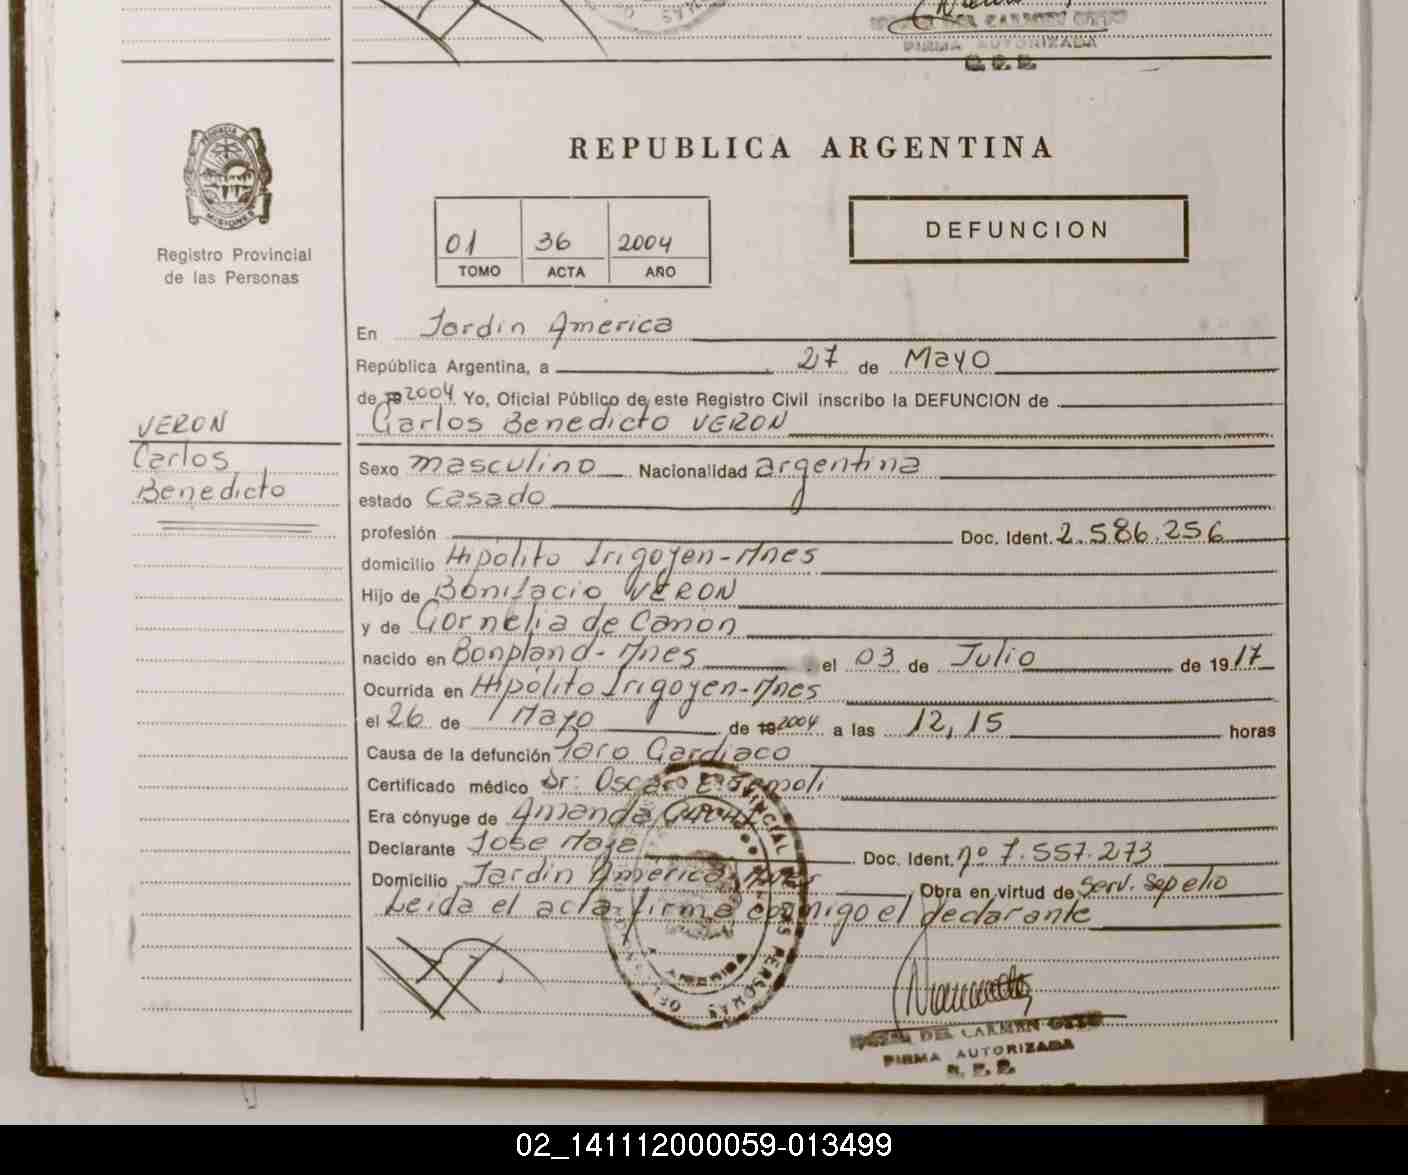 FIRMA AUTORIZADA
R. P. P.
PROVINCIA DE
MISIONES
Registro Provincial
de las Personas
REPUBLICA ARGENTINA
01 36 2004
TOMO ACTA AÑO
DEFUNCION
En Jardin America
República Argentina, a 27 de Mayo
de 19 2004 Yo, Oficial Público de este Registro Civil inscribo la DEFUNCION de
Carlos Benedicto VERON
VERON
Carlos
Benedicto
Sexo masculino Nacionalidad argentina
estado Casado
profesión Doc. Ident. 2.586.256
domicilio Hipólito Irigoyen-Mnes
Hijo de Bonifacio VERON
y de Cornelia de Canon
nacido en Bonpland-Mnes el 03 de Julio de 1917
Ocurrida en Hipólito Irigoyen-Mnes
el 26 de Mayo de 19 2004 a las 12,15 horas
Causa de la defunción Paro Cardiaco
Certificado médico Dr: Oscar E.
Era cónyuge de Amanda
Declarante Jose Doc. Ident. nº 7.557.273
Domicilio Jardin America Mnes Obra en virtud de Serv. Sepelio
Leida el acta firma conmigo el declarante
DEL CARMEN
FIRMA AUTORIZADA
R. P. P.
02_141112000059-013499